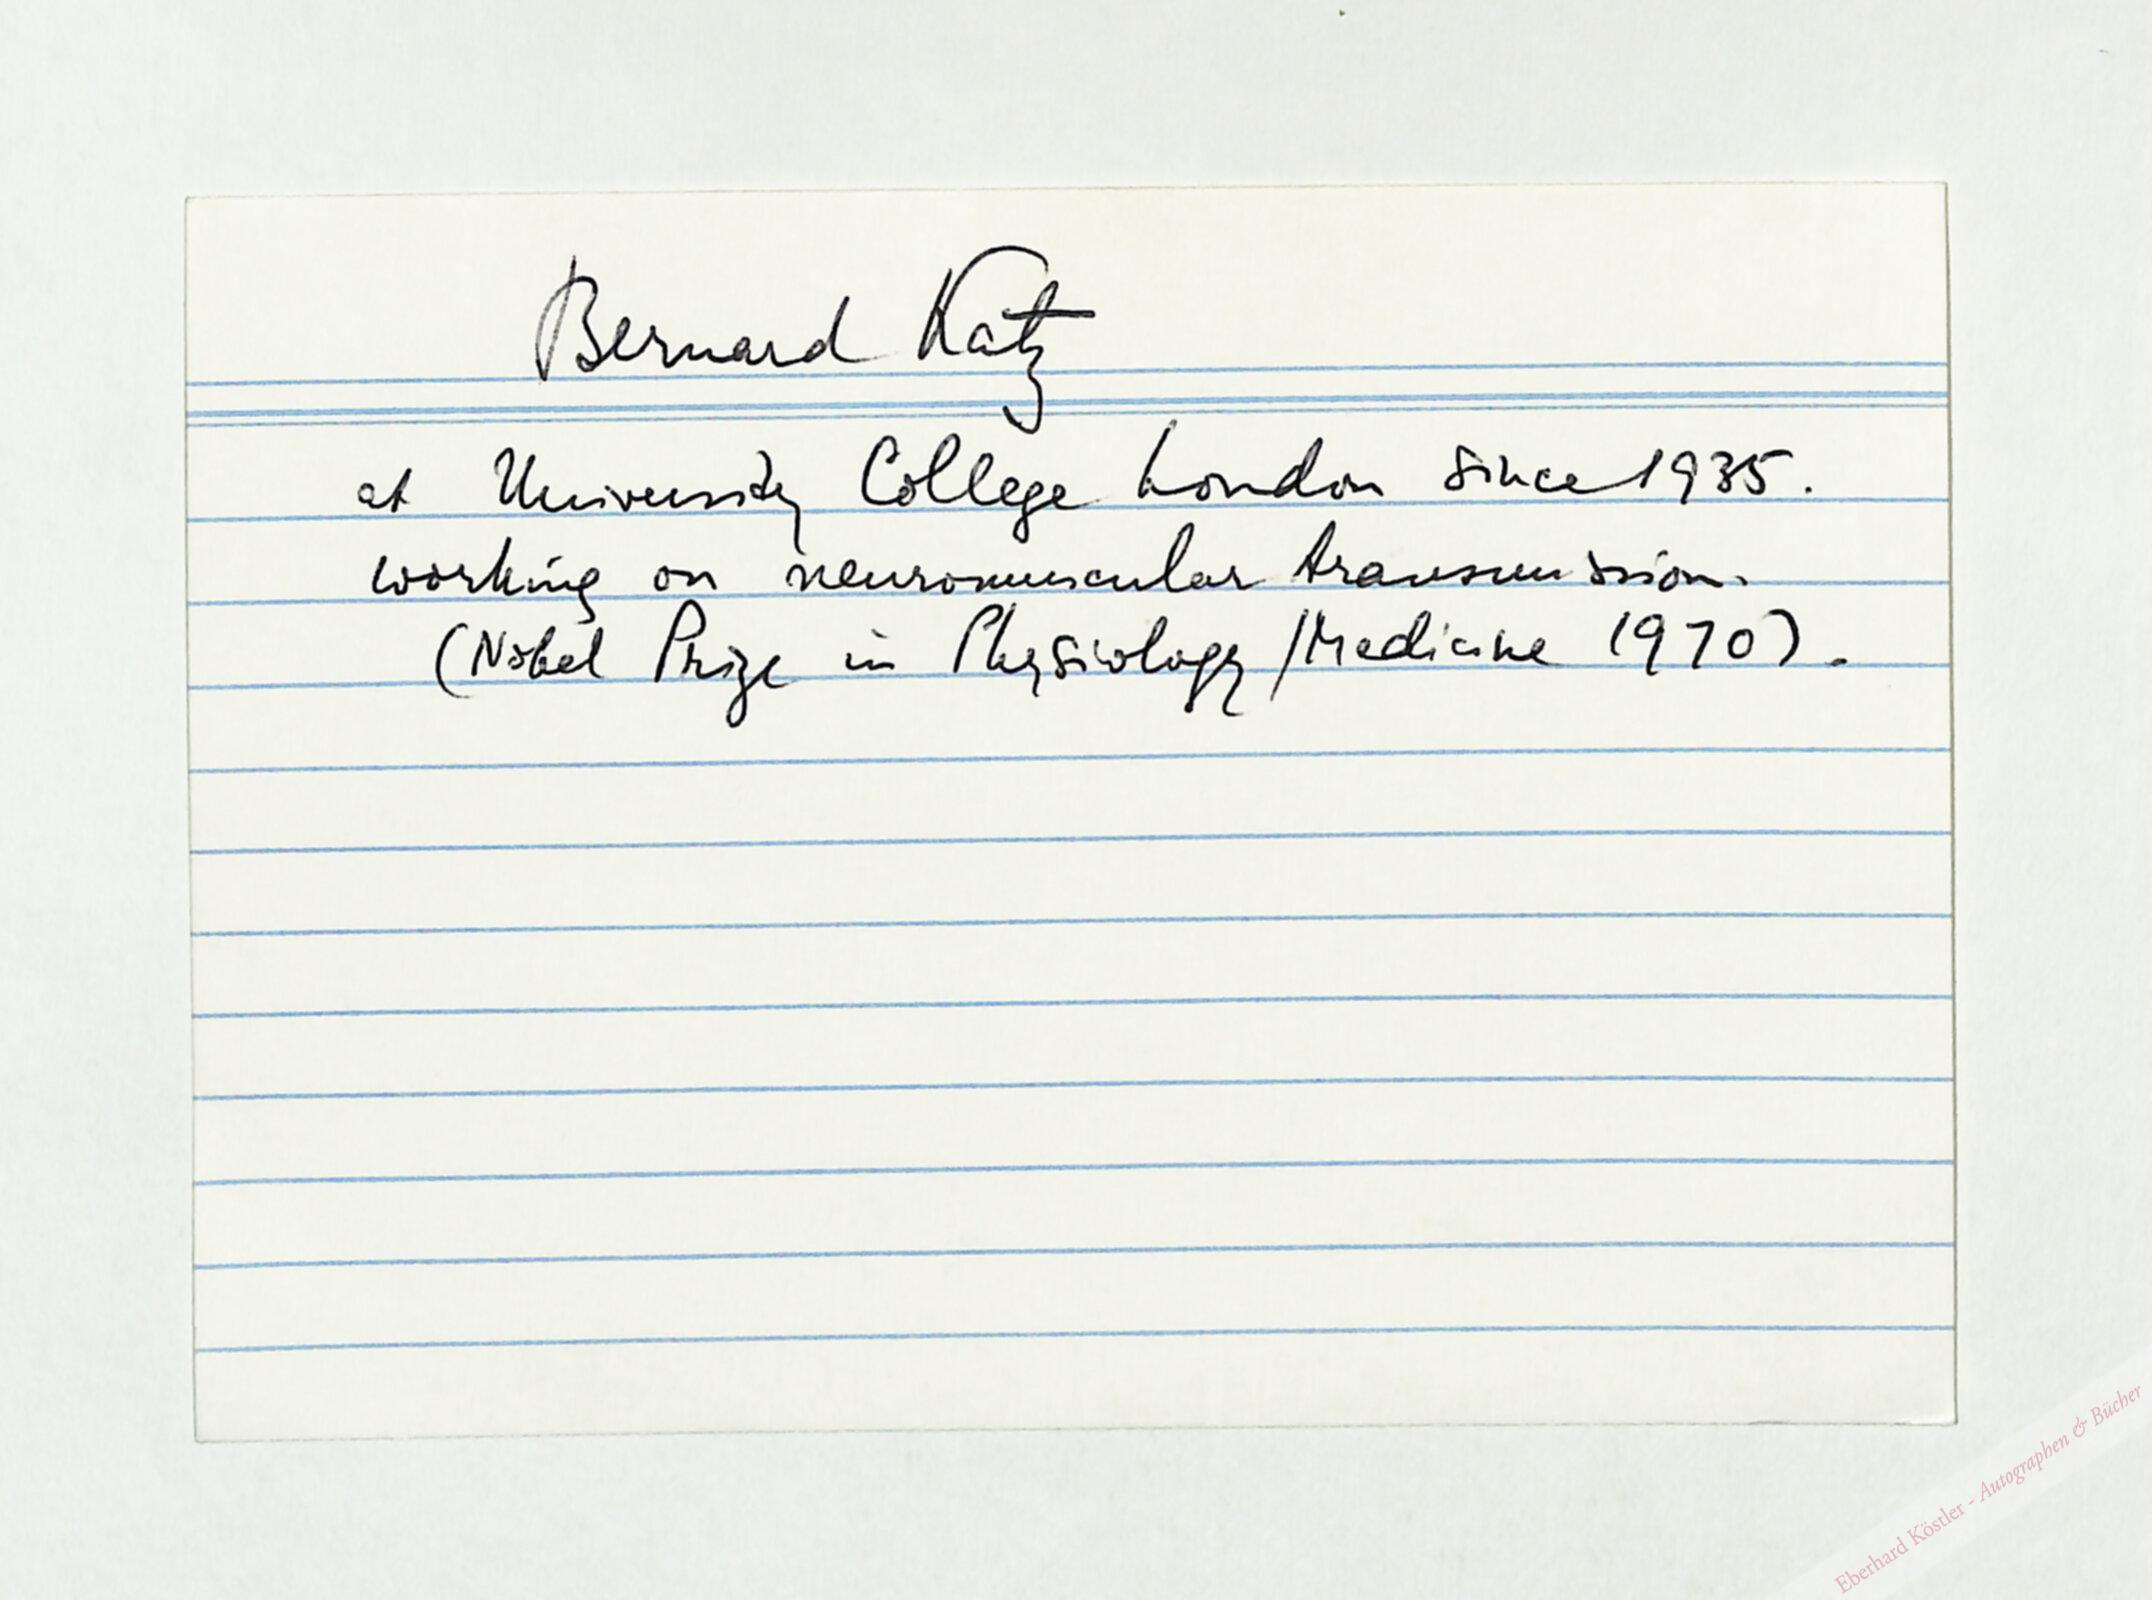 Bernard Katz
at University College London since 1935.
working on neuromuscular transmission.
(Nobel Prize in Physiology/Medicine 1970).
Eberhard Köstler - Autographen & Bücher